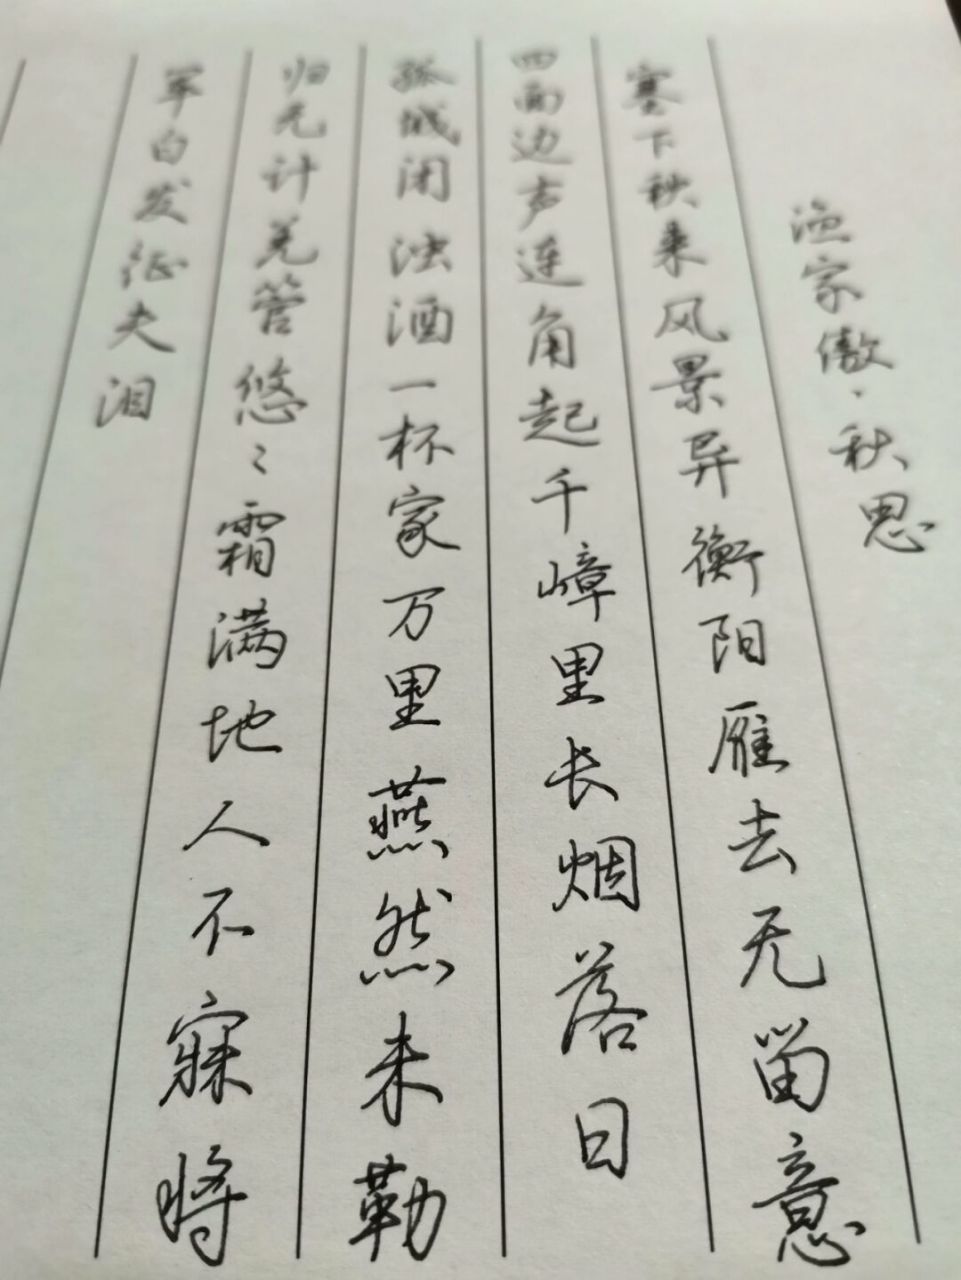 渔家傲·秋思
塞下秋来风景异衡阳雁去无留意
四面边声连角起千嶂里长烟落日
孤城闭浊酒一杯家万里燕然未勒
归无计羌管悠々霜满地人不寐将
军白发征夫泪